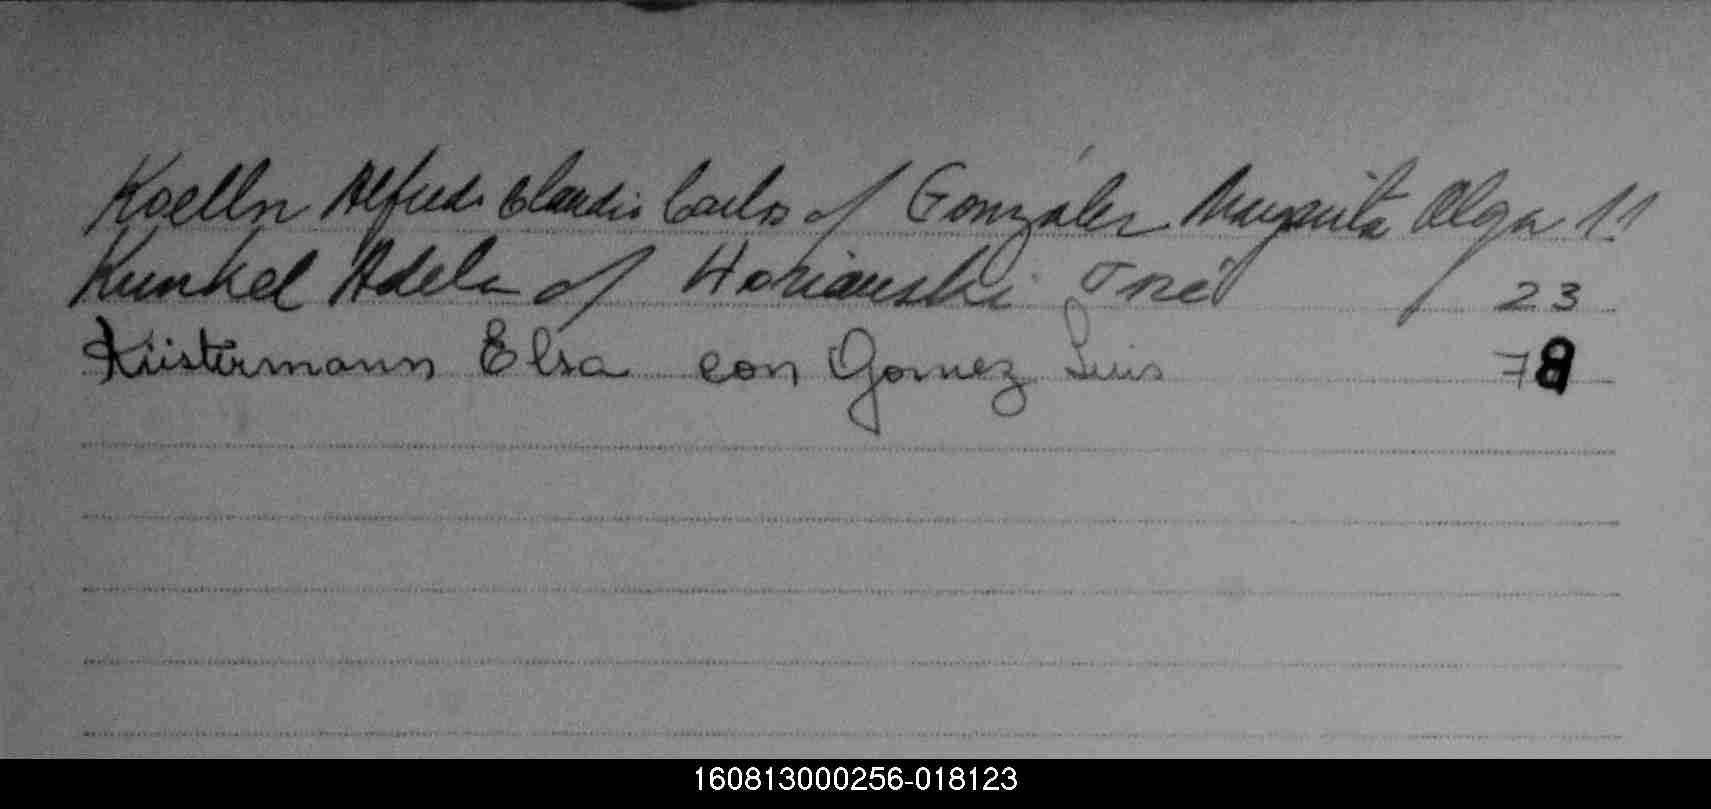 Koelln Alfredo Claudio Carlos c/ González Margarita Olga 11
Kunkel Adela c/ José 23
Küstermann Elsa con Gomez Luis 78
160813000256-018123